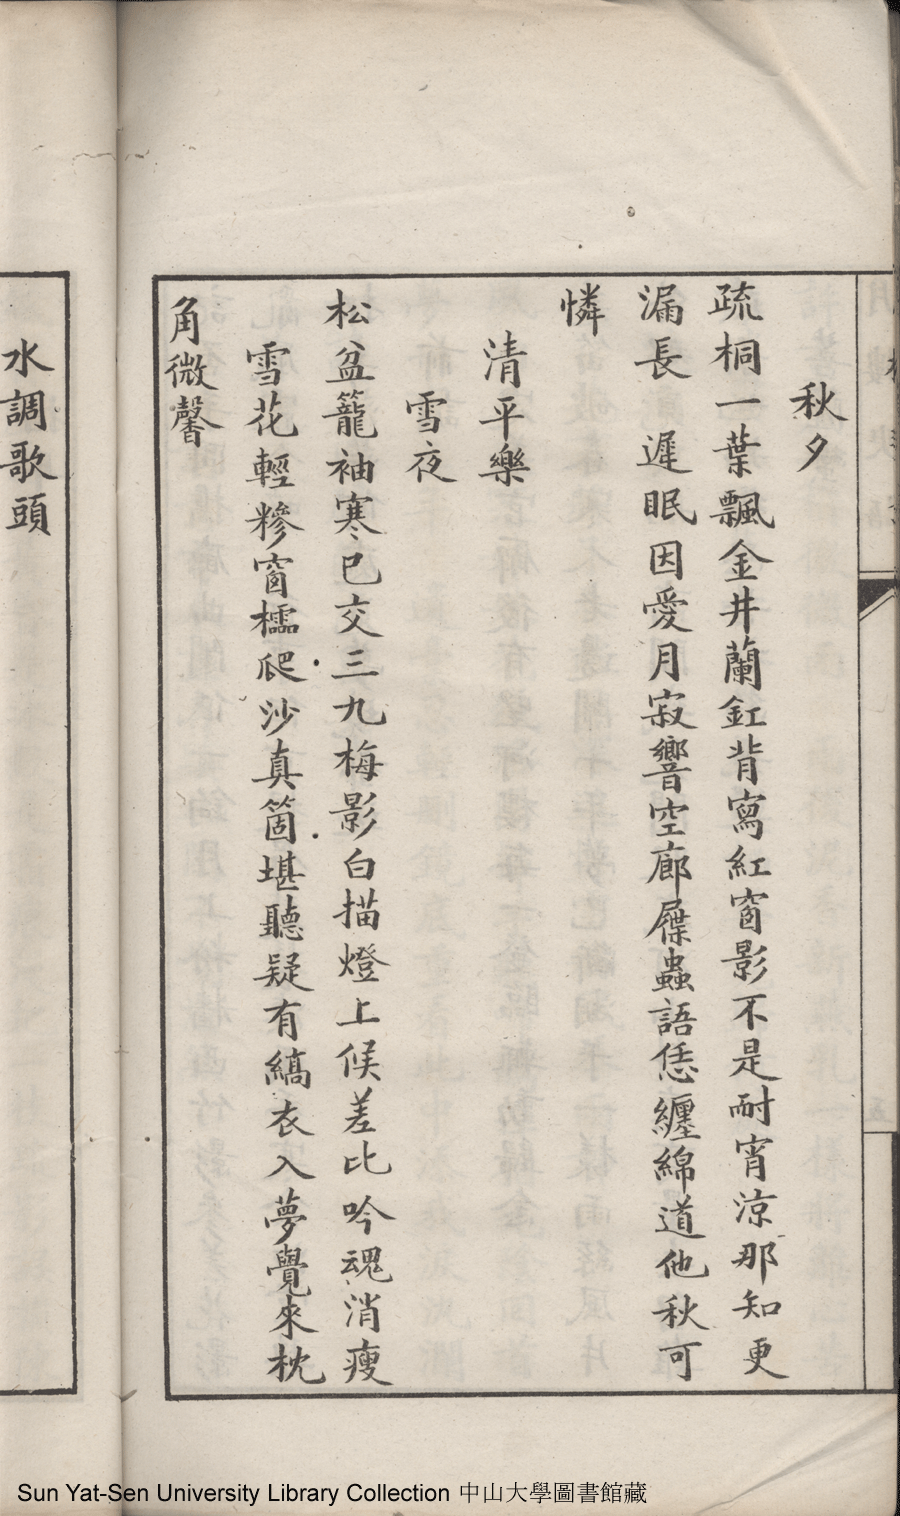 秋夕
疏桐一葉飄金井蘭釭背寫紅窗影不是耐宵涼那知更
漏長　遲眠因愛月寂響空廊屧蟲語恁纏綿道他秋可
憐
清平樂
雪夜
松盆籠袖寒已交三九梅影白描燈上候差比吟魂消瘦
雪花輕糝窗櫺爬沙真箇堪聽疑有縞衣入夢覺來枕
角微馨
水調歌頭
Sun Yat-Sen University Library Collection 中山大學圖書館藏